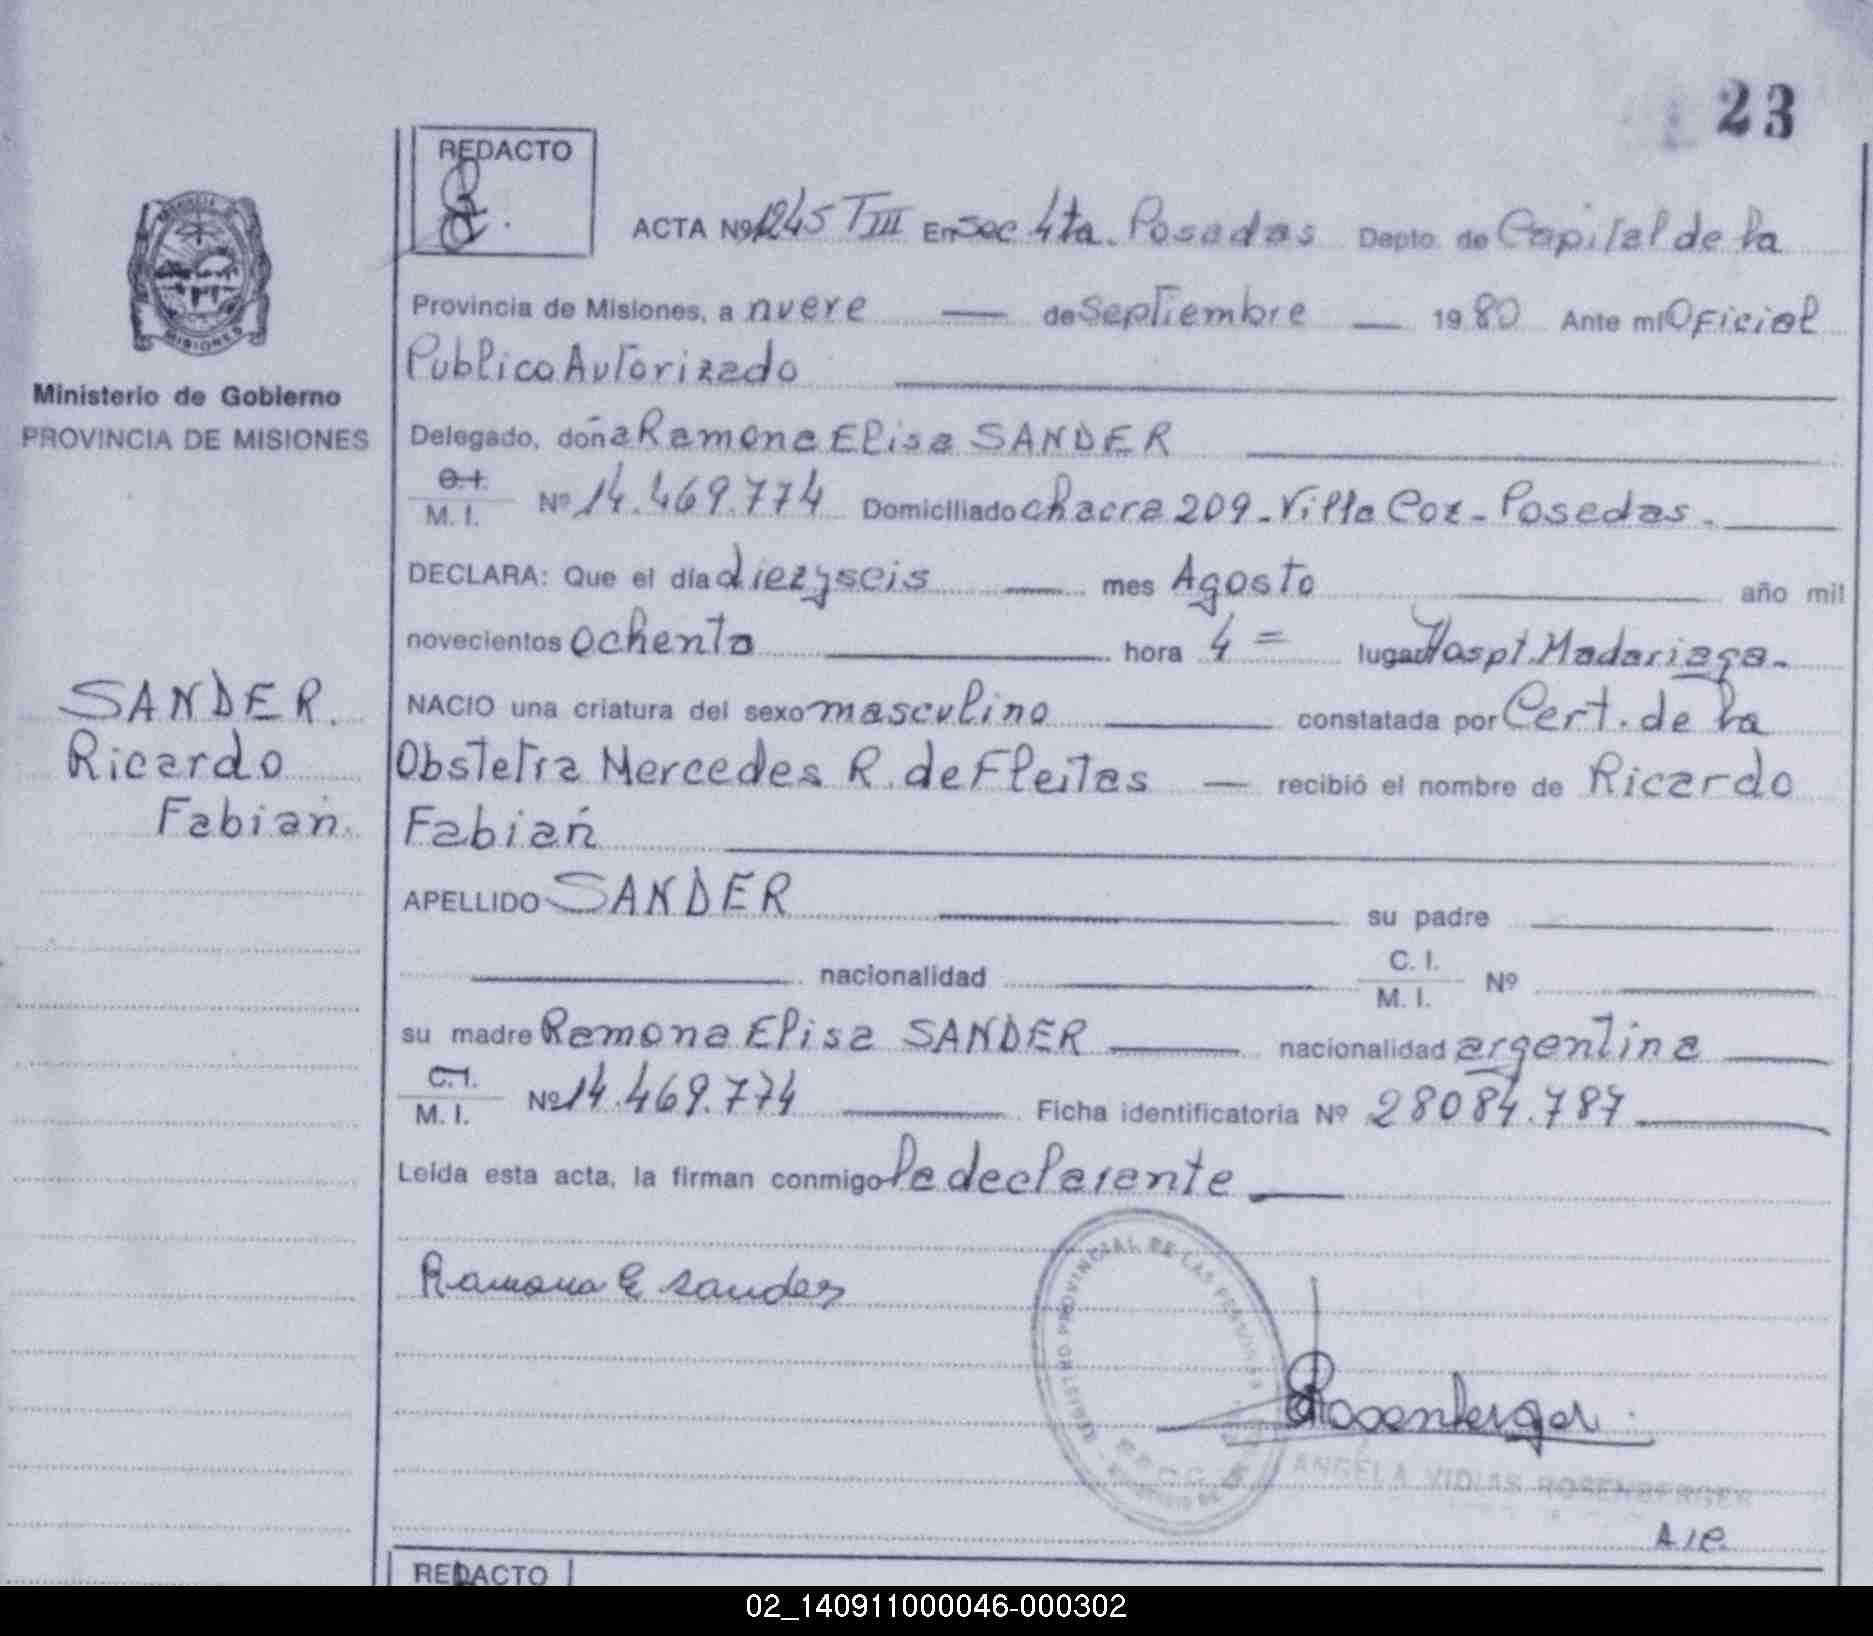 23
REDACTO
ACTA Nº 1245 T III En Sec 4ta. Posadas Depto. de Capital de la
Provincia de Misiones, a nueve — de Septiembre — 1980 Ante mi Oficial
Publico Autorizado
Delegado, doña Ramona Elisa SANDER
C.I.
M. I. Nº 14.469.774 Domiciliado chacra 209 - Villa Coz - Posadas.
DECLARA: Que el día diezyseis — mes Agosto año mil
novecientos ochenta hora 4 = lugar Hospt. Madariaga.
NACIO una criatura del sexo masculino constatada por Cert. de la
Obstetra Mercedes R. de Fleitas — recibió el nombre de Ricardo
Fabián
APELLIDO SANDER su padre
nacionalidad C. I.
M. I. Nº
su madre Ramona Elisa SANDER nacionalidad argentina
C. I.
M. I. Nº 14.469.774 Ficha identificatoria Nº 28084.787
Leída esta acta, la firman conmigo la declarante
Ramona E Sander
Rosenberger
ANGELA VIDIAS ROSENBERGER
REDACTO
PROVINCIA
MISIONES
Ministerio de Gobierno
PROVINCIA DE MISIONES
SANDER.
Ricardo
Fabián.
REGISTRO PROVINCIAL DE LAS PERSONAS
02_140911000046-000302